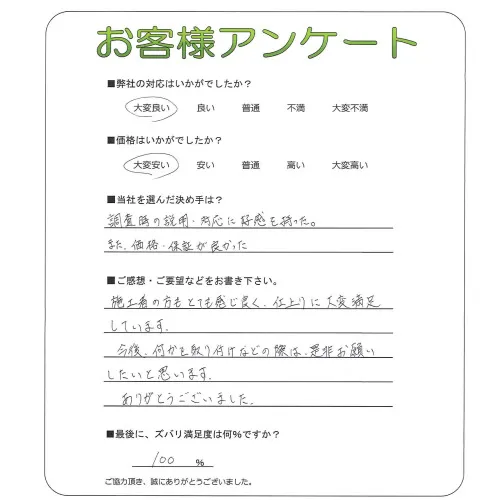 お客様アンケート
■弊社の対応はいかがでしたか？
大変良い 良い 普通 不満 大変不満
■価格はいかがでしたか？
大変安い 安い 普通 高い 大変高い
■当社を選んだ決め手は？
調査時の説明・対応に好感を持った。
また、価格・保証が良かった
■ご感想・ご要望などをお書き下さい。
施工者の方もとても感じ良く、仕上りに大変満足
しています。
今後、何かを取り付けなどの際は、是非お願い
したいと思います。
ありがとうございました。
■最後に、ズバリ満足度は何%ですか？
100 %
ご協力頂き、誠にありがとうございました。